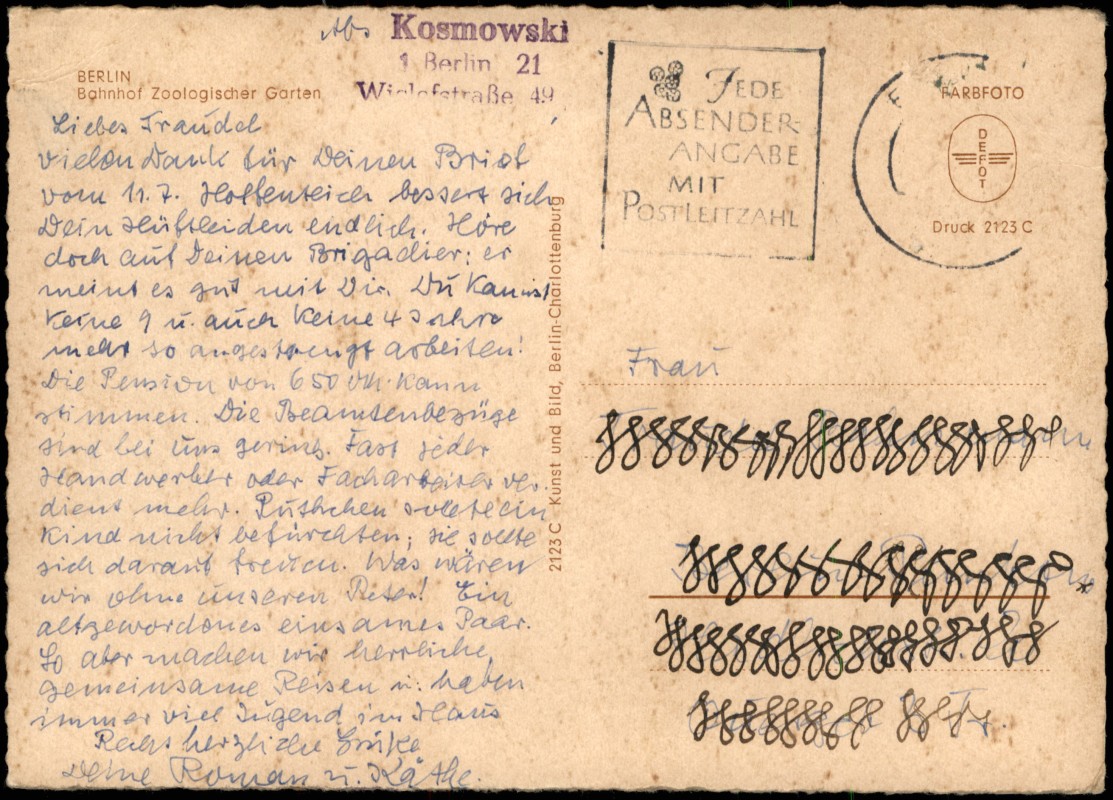 Abs Kosmowski
1 Berlin 21
Wiclefstraße 49
BERLIN
Bahnhof Zoologischer Garten
Liebes Traudel
vielen Dank für Deinen Brief
vom 11.7. Hoffentlich bessert sich
Dein Hüftleiden endlich. Höre
doch auf Deinen Brigadier; er
meint es gut mit Dir. Du kannst
keine 9 u. auch keine 4 Jahre
mehr so angestrengt arbeiten!
Die Pension von 650 DM kann
stimmen. Die Beamtenbezüge
sind bei uns gering. Fast jeder
Handwerker oder Facharbeiter ver-
dient mehr. Püthchen sollte ein
Kind nicht befürchten; sie sollte
sich darauf freuen. Was wären
wir ohne unseren Peter! Ein
altgewordenes einsames Paar.
So aber machen wir herrliche
gemeinsame Reisen u. haben
immer viel Jugend im Haus
Recht herzliche Grüße
Deine Roman u. Käthe.
2123 C Kunst und Bild, Berlin-Charlottenburg
JEDE
ABSENDER-
ANGABE
MIT
POSTLEITZAHL
FARBFOTO
DEFOT
Druck 2123 C
Frau